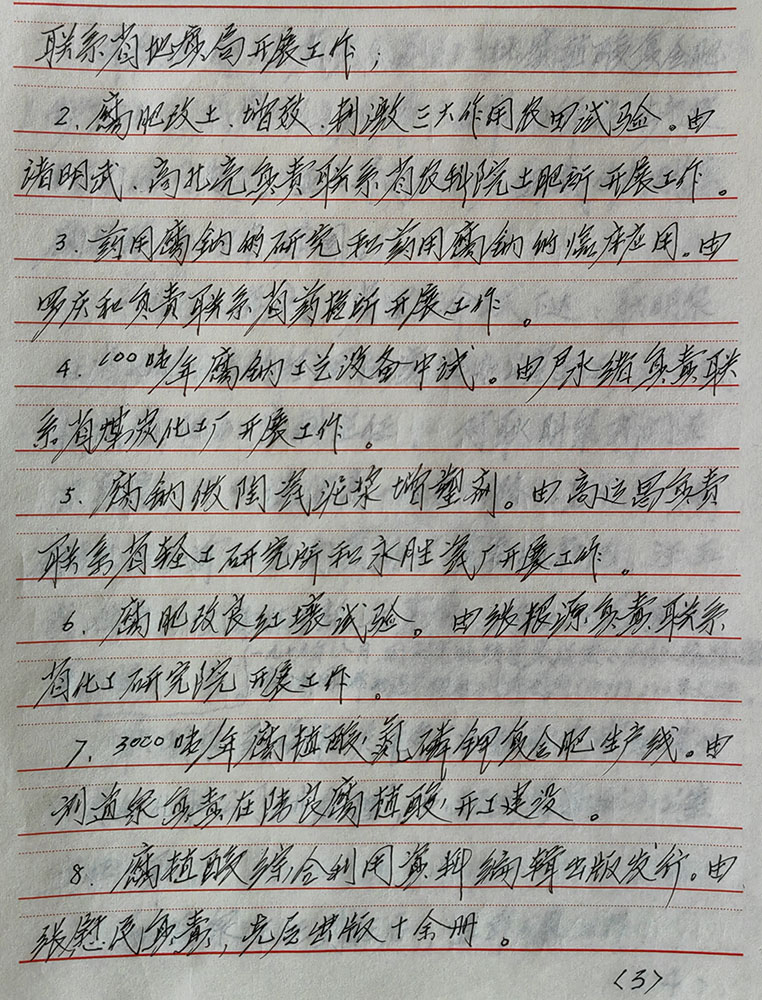 联系省地质局开展工作；
2、腐肥改土、增效、刺激三大作用农田试验。由
诸明武、高兆亮负责联系省农科院土肥所开展工作。
3、药用腐钠的研究和药用腐钠的临床应用。由
罗庆和负责联系省药检所开展工作。
4、1000吨/年腐钠工艺设备中试。由尹永绪负责联
系省煤炭化工厂开展工作。
5、腐钠做陶瓷泥浆增塑剂。由高运昌负责
联系省轻工研究所和永胜瓷厂开展工作。
6、腐肥改良红壤试验。由张根源负责联系
省化工研究院开展工作。
7、3000吨/年腐植酸氮磷钾复合肥生产线。由
刘道荣负责在陆良腐植酸开工建设。
8、腐植酸综合利用资料编辑出版发行。由
张慰民负责，先后出版十余册。
〈3〉